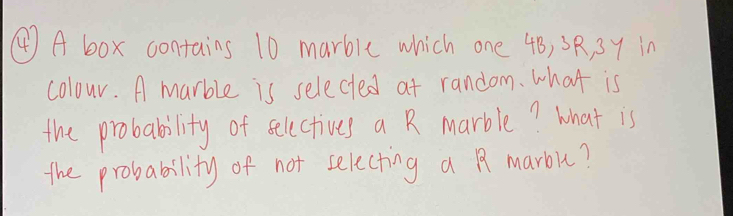 ④ A box contains 10 marble which one 4B, 3R, 3Y in
colour. A marble is selected at random. What is
the probability of selectives a R marble? What is
the probability of not selecting a R marble?